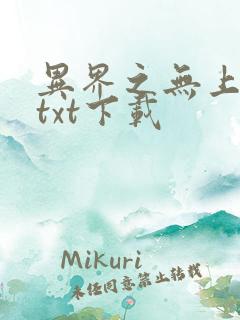 異界之無上
txt下載
Mikuri
未經同意禁止轉載